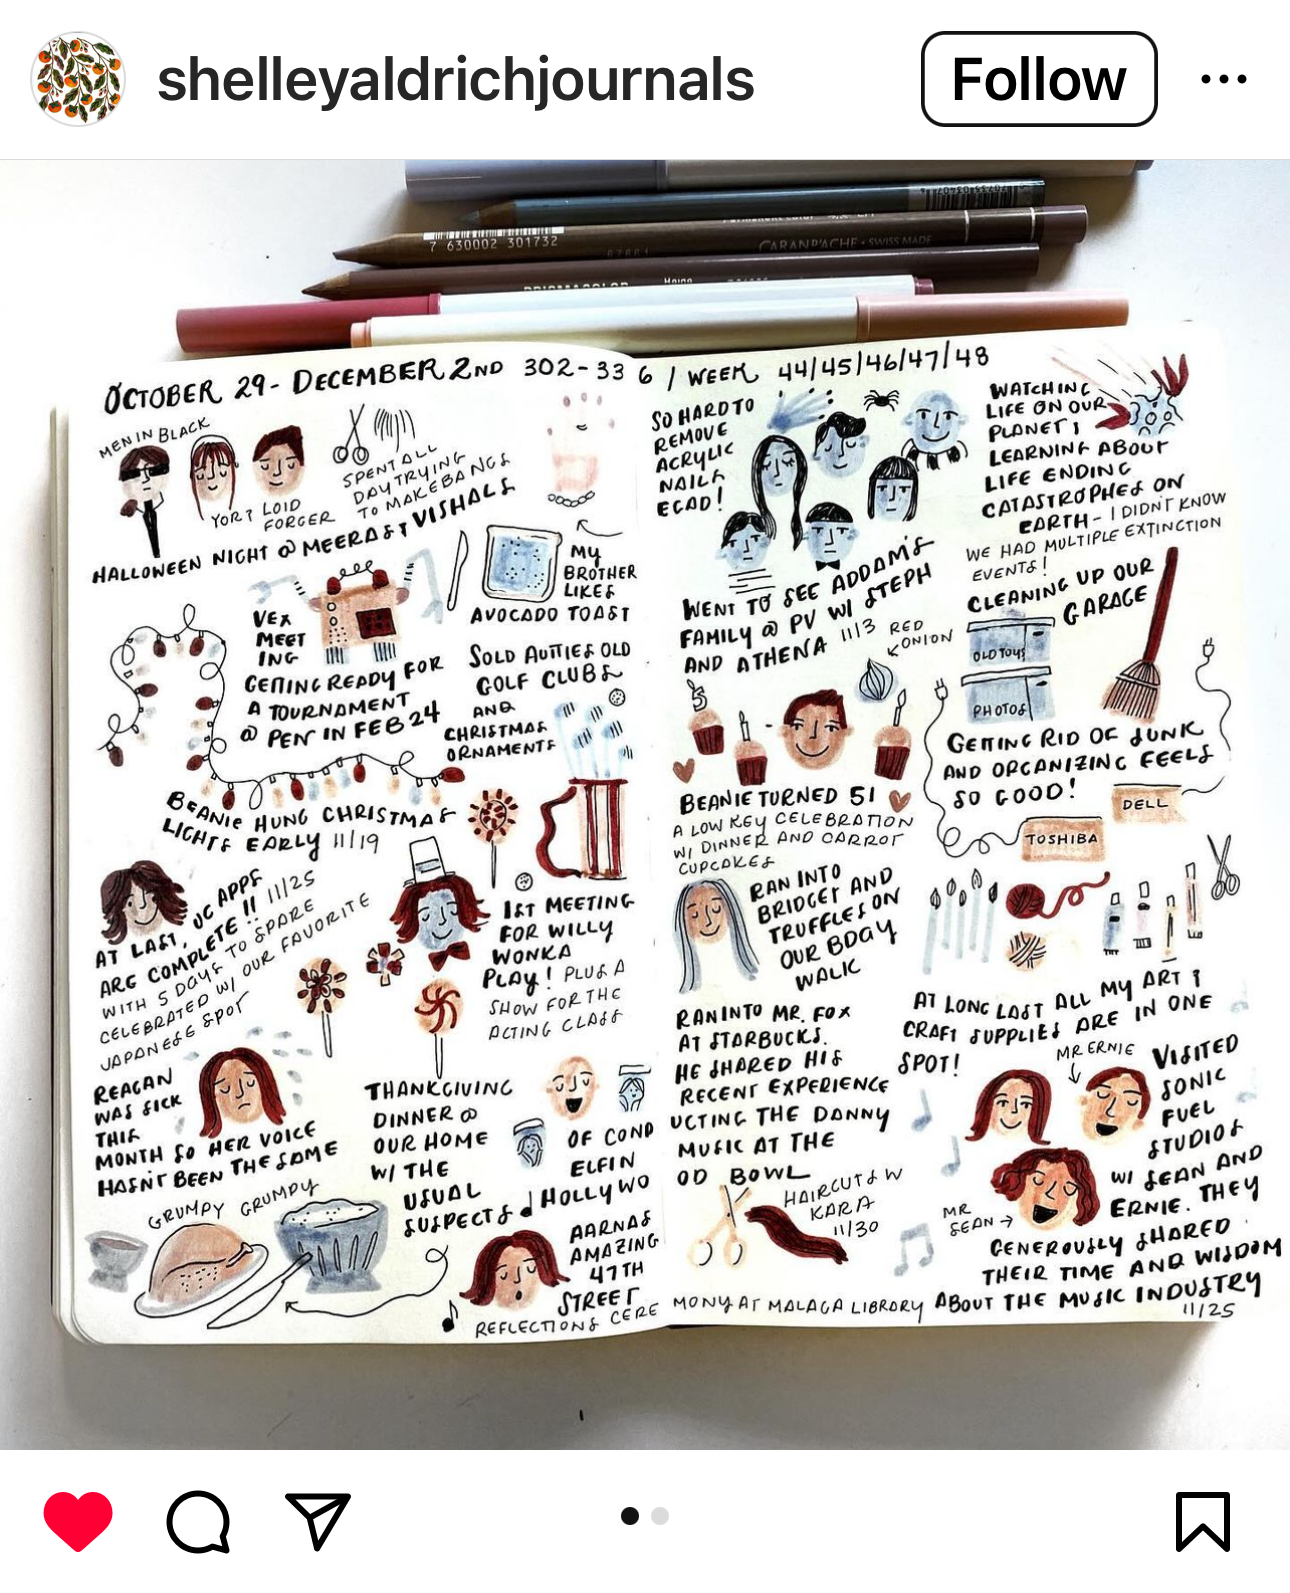 shelleyaldrichjournals
Follow
7 630002 301732
CARAN D'ACHE • SWISS MADE
OCTOBER 29 - DECEMBER 2ND 302-336 / WEEK 44/45/46/47/48
MEN IN BLACK
YOR & LOID
FORGER
SPENT ALL
DAY TRYING
TO MAKE BANGS
HALLOWEEN NIGHT @ MEERA & VISHALS
MY
BROTHER
LIKES
AVOCADO TOAST
VEX
MEET
ING
GETTING READY FOR
A TOURNAMENT
@ PEN IN FEB 24
SOLD AUTTIES OLD
GOLF CLUBS
AND
CHRISTMAS
ORNAMENTS
BEANIE HUNG CHRISTMAS
LIGHTS EARLY 11/19
AT LAST, UC APPS
ARE COMPLETE!! 11/25
WITH 5 DAYS TO SPARE
CELEBRATED W/ OUR FAVORITE
JAPANESE SPOT
1ST MEETING
FOR WILLY
WONKA
PLAY! PLUS A
SHOW FOR THE
ACTING CLASS
REAGAN
WAS SICK
THIS
MONTH SO HER VOICE
HASN'T BEEN THE SAME
GRUMPY GRUMPY
THANKGIVING
DINNER @
OUR HOME
W/ THE
USUAL
SUSPECTS
SO HARD TO
REMOVE
ACRYLIC
NAILS
EGAD!
WENT TO SEE ADDAM'S
FAMILY @ PV W/ STEPH
AND ATHENA 11/3
RED
ONION
BEANIE TURNED 51
A LOW KEY CELEBRATION
W/ DINNER AND CARROT
CUPCAKES
RAN INTO
BRIDGET AND
TRUFFLES ON
OUR BDAY
WALK
RAN INTO MR. FOX
AT STARBUCKS.
HE SHARED HIS
RECENT EXPERIENCE
OF CONDUCTING THE DANNY
ELFIN MUSIC AT THE
HOLLYWOOD BOWL
HAIRCUTS W
KARA
11/30
AARNAS
AMAZING
47TH
STREET
REFLECTIONS CEREMONY AT MALAGA LIBRARY
WATCHING
LIFE ON OUR
PLANET &
LEARNING ABOUT
LIFE ENDING
CATASTROPHES ON
EARTH - I DIDN'T KNOW
WE HAD MULTIPLE EXTINCTION
EVENTS!
CLEANING UP OUR
GARAGE
OLD TOYS
PHOTOS
GETTING RID OF JUNK
AND ORGANIZING FEELS
SO GOOD!
DELL
TOSHIBA
AT LONG LAST ALL MY ART &
CRAFT SUPPLIES ARE IN ONE
SPOT!
MR ERNIE
MR
SEAN
VISITED
SONIC
FUEL
STUDIOS
W/ SEAN AND
ERNIE. THEY
GENEROUSLY SHARED
THEIR TIME AND WISDOM
ABOUT THE MUSIC INDUSTRY
11/25